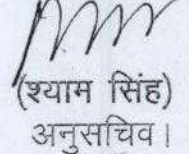 (श्याम सिंह)
अनुसचिव।